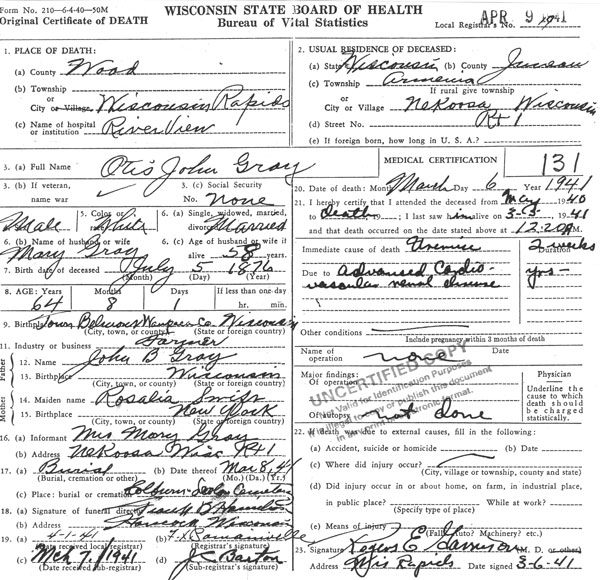 Form No. 210—6-4-40—50M
Original Certificate of DEATH
WISCONSIN STATE BOARD OF HEALTH
Bureau of Vital Statistics
Local Registrar's No.
APR 9 1941
1. PLACE OF DEATH:
(a) County Wood
(b) Township
or
City or Village Wisconsin Rapids
(c) Name of hospital
or institution River View
2. USUAL RESIDENCE OF DECEASED:
(a) State Wisconsin (b) County Juneau
(c) Township Armenia
If rural give township
or
City or Village Nekoosa Wisconsin
(d) Street No. Rt 1
(e) If foreign born, how long in U. S. A.?
3. (a) Full Name Otis John Gray
3. (b) If veteran,
name war
3. (c) Social Security
No. None
Male
5. Color or
race White
6. (a) Single, widowed, married,
divorced Married
6. (b) Name of husband or wife
Mary Gray
6. (c) Age of husband or wife if
alive 58 years
7. Birth date of deceased July 5 1876
(Month) (Day) (Year)
8. AGE: Years Months Days If less than one-day
64 8 1 hr. min.
9. Birthplace Town Belmont Waupaca Co. Wisconsin
(City, town, or county) (State or foreign country)
11. Industry or business Farmer
Father
12. Name John B Gray
13. Birthplace Wisconsin
(City, town, or county) (State or foreign country)
Mother
14. Maiden name Rosalia Swift
15. Birthplace New York
(City, town, or county) (State or foreign country)
16. (a) Informant Mrs Mary Gray
(b) Address Nekoosa Wisc Rt 1
17. (a) Burial (b) Date thereof Mar 8, 41
(Burial, cremation or other) (Mo.) (Da.) (Yr.)
(c) Place: burial or cremation Cemetery
18. (a) Signature of funeral director
(b) Address Hancock Wisconsin
19. (a) 4-1-41 (b)
(Date received local registrar) (Registrar's signature)
(c) Mch 7, 1941 (d) Barton
(Date received sub-registrar) (Sub-registrar's signature)
MEDICAL CERTIFICATION 131
20. Date of death: Month March Day 6 Year 1941
21. I hereby certify that I attended the deceased from May 1940
to death; I last saw him alive on 3-5- 41
and that death occurred on the date stated above at 12:20 A M.
Immediate cause of death Uremia
Duration
2 weeks
Due to Advanced Cardio- yrs-
vascular renal disease
Other conditions
Include pregnancy within 3 months of death
Name of
operation none Date
Major findings:
Of operation
Of autopsy not done
Physician
Underline the
cause to which
death should
be charged
statistically.
UNCERTIFIED COPY
Valid for Identification Purposes
22. If death was due to external causes, fill in the following:
(a) Accident, suicide or homicide (b) Date
(c) Where did injury occur?
(City, village or township, county and state)
(d) Did injury occur in or about home, on farm, in industrial place,
in public place? While at work?
(Specify type of place)
(e) Means of injury
(Fall? Auto? Machinery? etc.)
23. Signature Rogers E Garrison (M. D. or other)
Address Wis Rapids Date signed 3-6-41